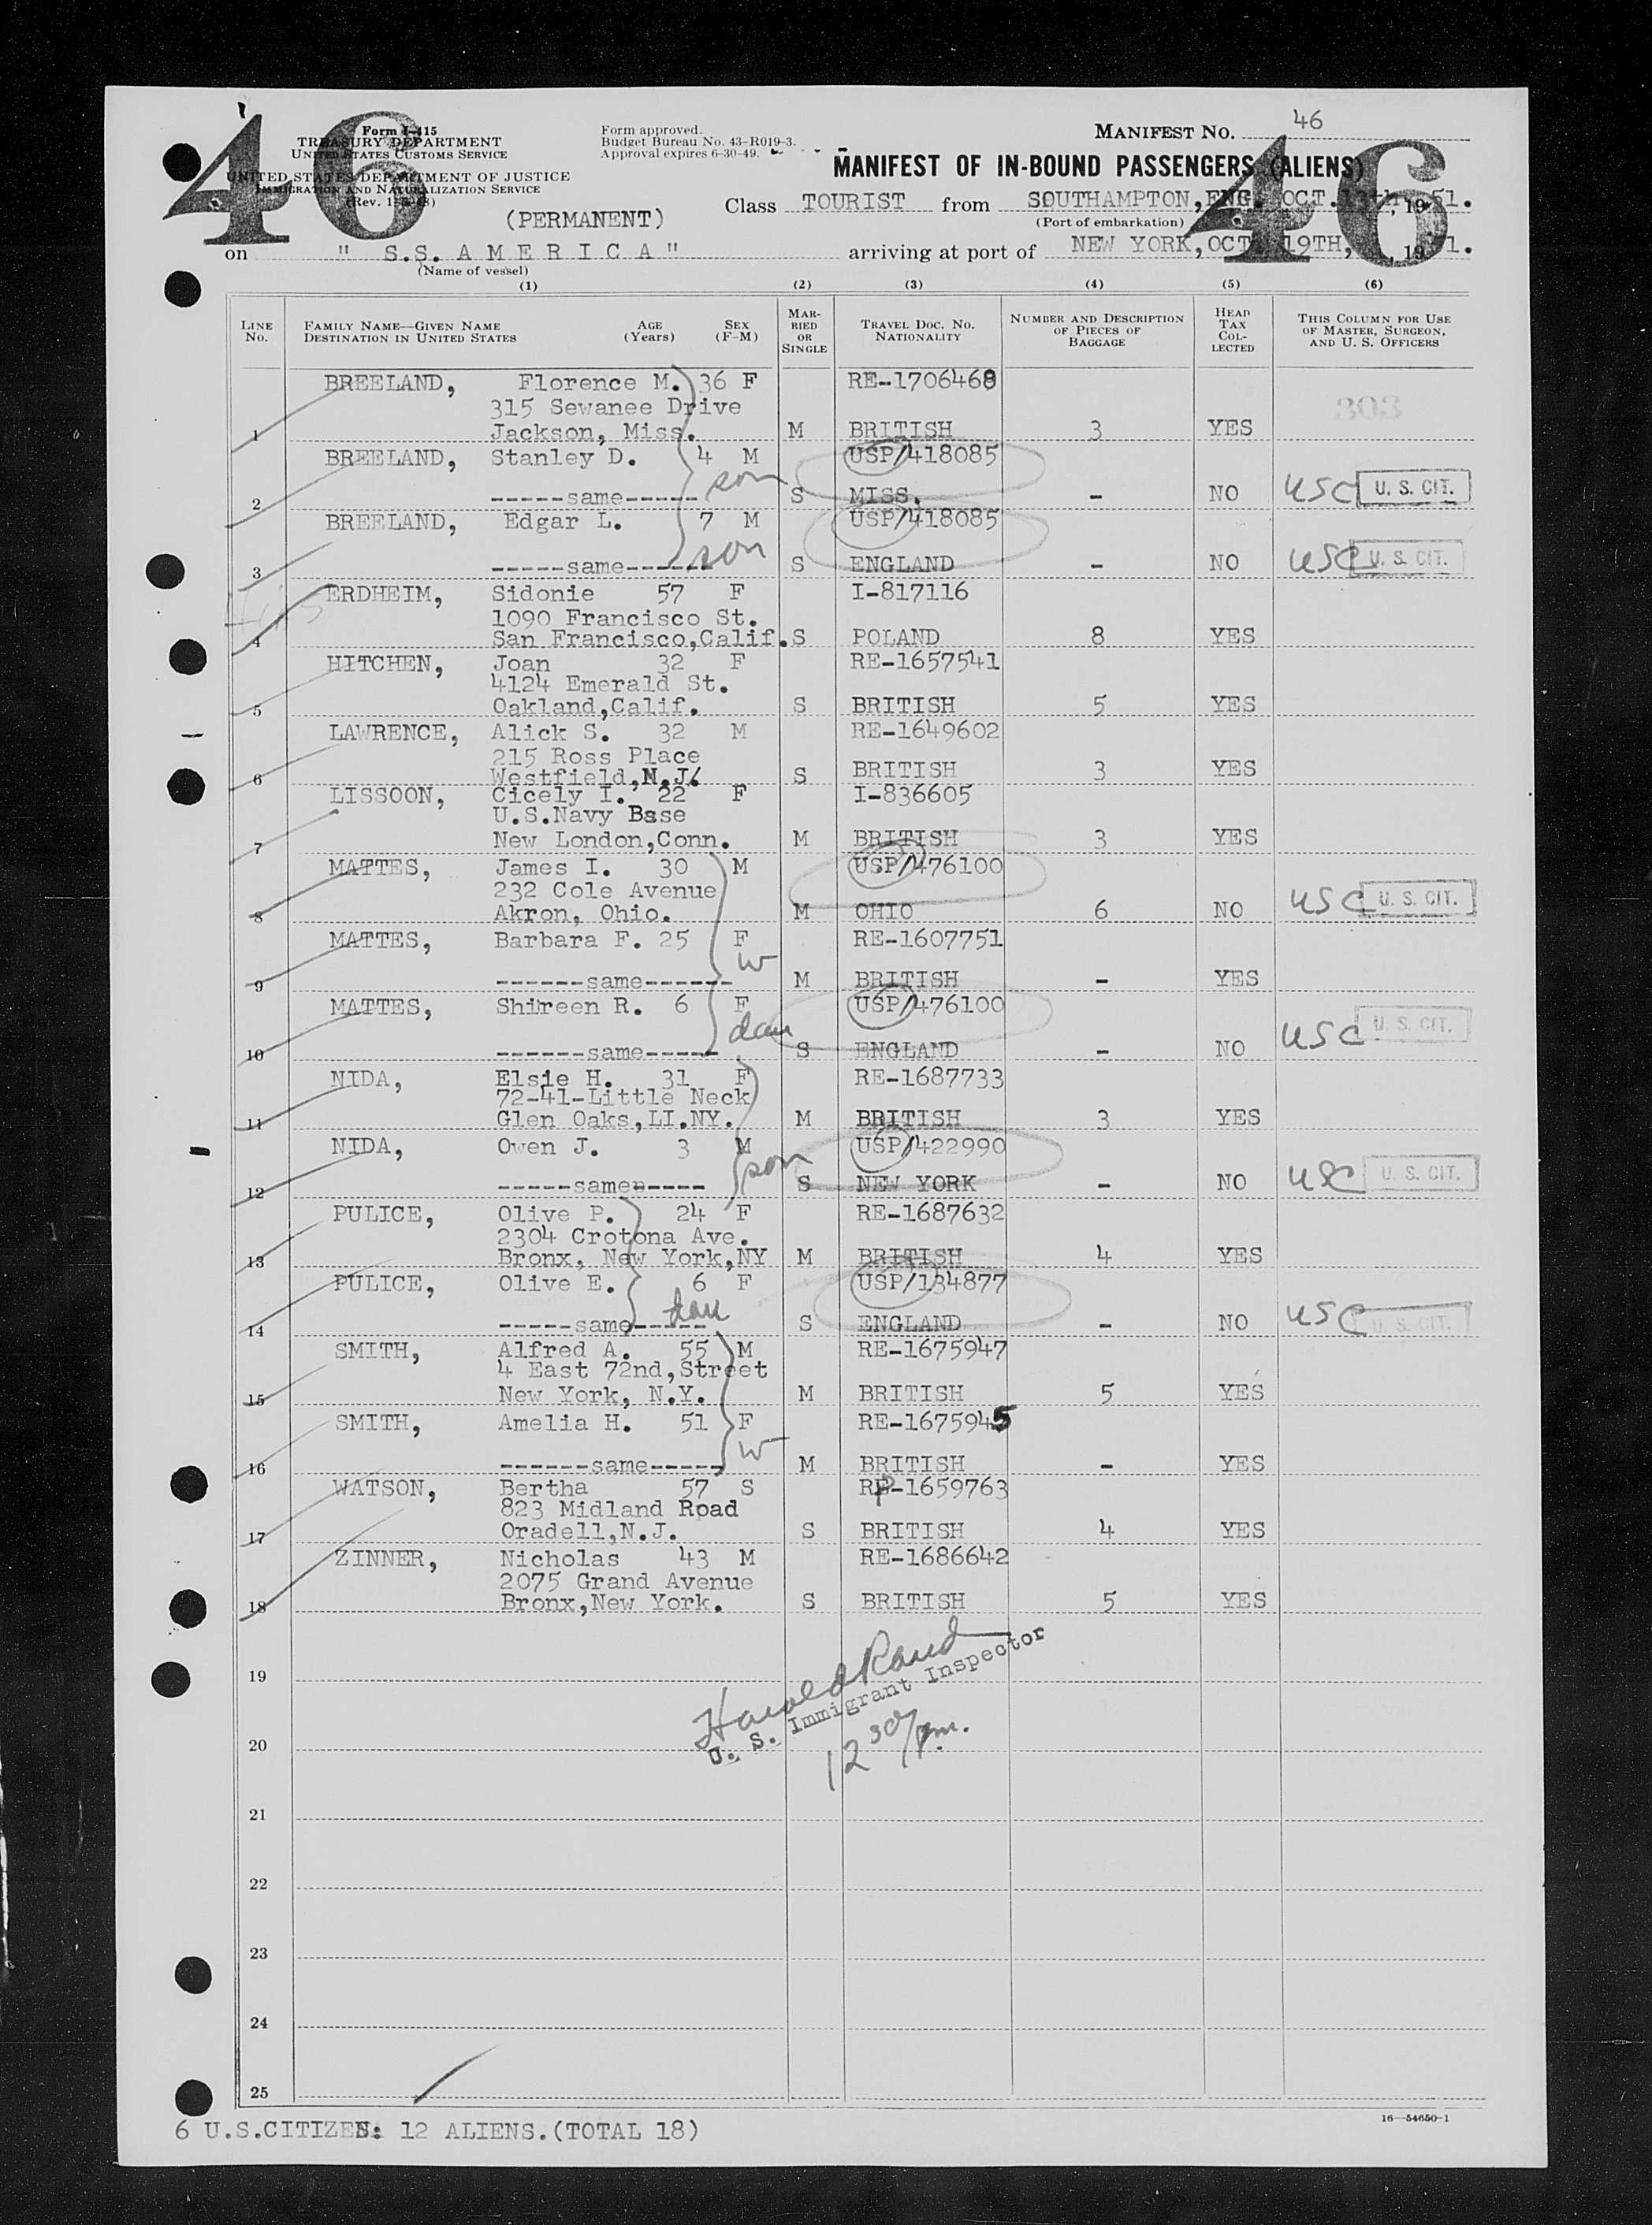 46
46
Form I-415
TREASURY DEPARTMENT
UNITED STATES CUSTOMS SERVICE
UNITED STATES DEPARTMENT OF JUSTICE
IMMIGRATION AND NATURALIZATION SERVICE
(PERMANENT)
Form approved.
Budget Bureau No. 43-R019-3.
Approval expires 6-30-49.
MANIFEST NO. 46
MANIFEST OF IN-BOUND PASSENGERS (ALIENS)
Class TOURIST from SOUTHAMPTON,ENG. OCT.13th, 1951.
(Port of embarkation)
on " S.S. A M E R I C A " arriving at port of NEW YORK,OCT. 19TH, 1951.
(Name of vessel)
(1) (2) (3) (4) (5) (6)
LINE No. FAMILY NAME—GIVEN NAME DESTINATION IN UNITED STATES AGE (Years) SEX (F-M) MARRIED OR SINGLE TRAVEL DOC. NO. NATIONALITY NUMBER AND DESCRIPTION OF PIECES OF BAGGAGE HEAD TAX COLLECTED THIS COLUMN FOR USE OF MASTER, SURGEON, AND U. S. OFFICERS
BREELAND, Florence M. 36 F RE-1706468
315 Sewanee Drive 303
1 Jackson, Miss. M BRITISH 3 YES
BREELAND, Stanley D. 4 M USP/418085
son
2 -----same----- S MISS. - NO USC U. S. CIT.
BREELAND, Edgar L. 7 M USP/418085
son
3 -----same------ S ENGLAND - NO USC U. S. CIT.
ERDHEIM, Sidonie 57 F I-817116
1090 Francisco St.
4 San Francisco,Calif. S POLAND 8 YES
HITCHEN, Joan 32 F RE-1657541
4124 Emerald St.
5 Oakland,Calif. S BRITISH 5 YES
LAWRENCE, Alick S. 32 M RE-1649602
215 Ross Place
6 Westfield,N.J. S BRITISH 3 YES
LISSOON, Cicely I. 22 F I-836605
U.S.Navy Base
7 New London,Conn. M BRITISH 3 YES
MATTES, James I. 30 M USP/476100
232 Cole Avenue
8 Akron, Ohio. M OHIO 6 NO USC U. S. CIT.
MATTES, Barbara F. 25 F RE-1607751
W
9 ------same------ M BRITISH - YES
MATTES, Shireen R. 6 F USP/476100
dau
10 ------same----- S ENGLAND - NO USC U. S. CIT.
NIDA, Elsie H. 31 F RE-1687733
72-41-Little Neck
11 Glen Oaks,LI.NY. M BRITISH 3 YES
NIDA, Owen J. 3 M USP/422990
son
12 -----same----- S NEW YORK - NO USC U. S. CIT.
PULICE, Olive P. 24 F RE-1687632
2304 Crotona Ave.
13 Bronx, New York,NY M BRITISH 4 YES
PULICE, Olive E. 6 F USP/134877
dau
14 -----same----- S ENGLAND - NO USC U. S. CIT.
SMITH, Alfred A. 55 M RE-1675947
4 East 72nd,Street
15 New York, N.Y. M BRITISH 5 YES
SMITH, Amelia H. 51 F RE-1675945
W
16 ------same----- M BRITISH - YES
WATSON, Bertha 57 S RP-1659763
823 Midland Road
17 Oradell,N.J. S BRITISH 4 YES
ZINNER, Nicholas 43 M RE-1686642
2075 Grand Avenue
18 Bronx,New York. S BRITISH 5 YES
19
Harold Rand
U. S. Immigrant Inspector
12 30/pm.
20
21
22
23
24
25
16—54650-1
6 U.S.CITIZEN: 12 ALIENS.(TOTAL 18)